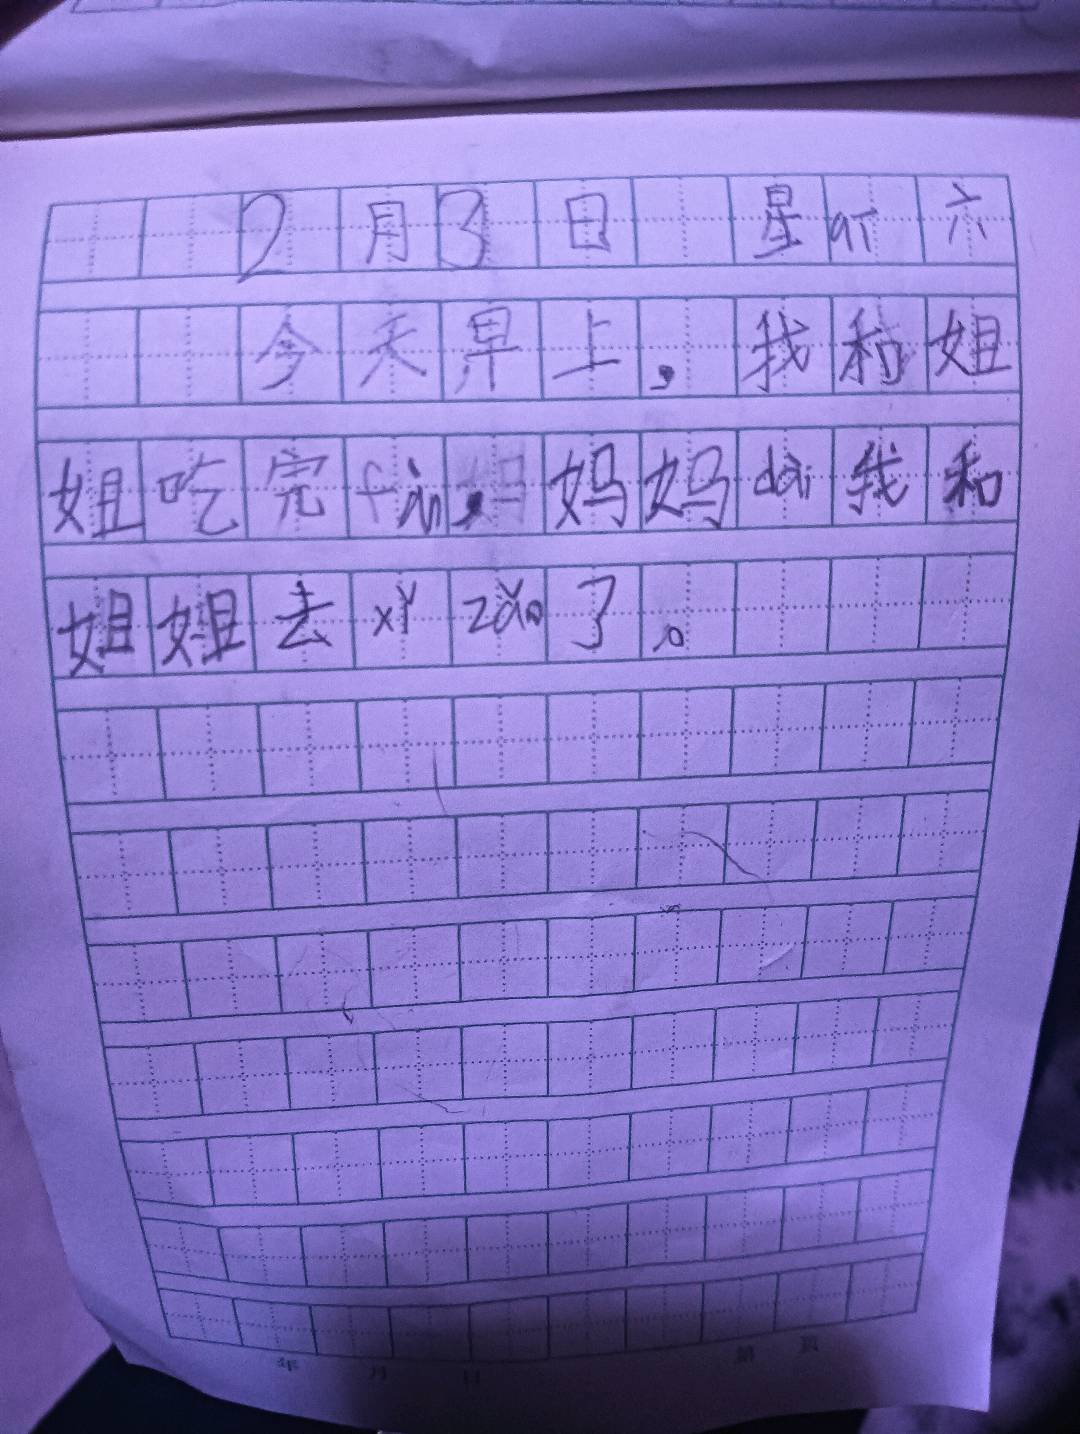 2月3日 星qī六
今天早上，我和姐
姐吃完fàn，妈妈dài我和
姐姐去xǐzǎo了。
年 月 日 第 页